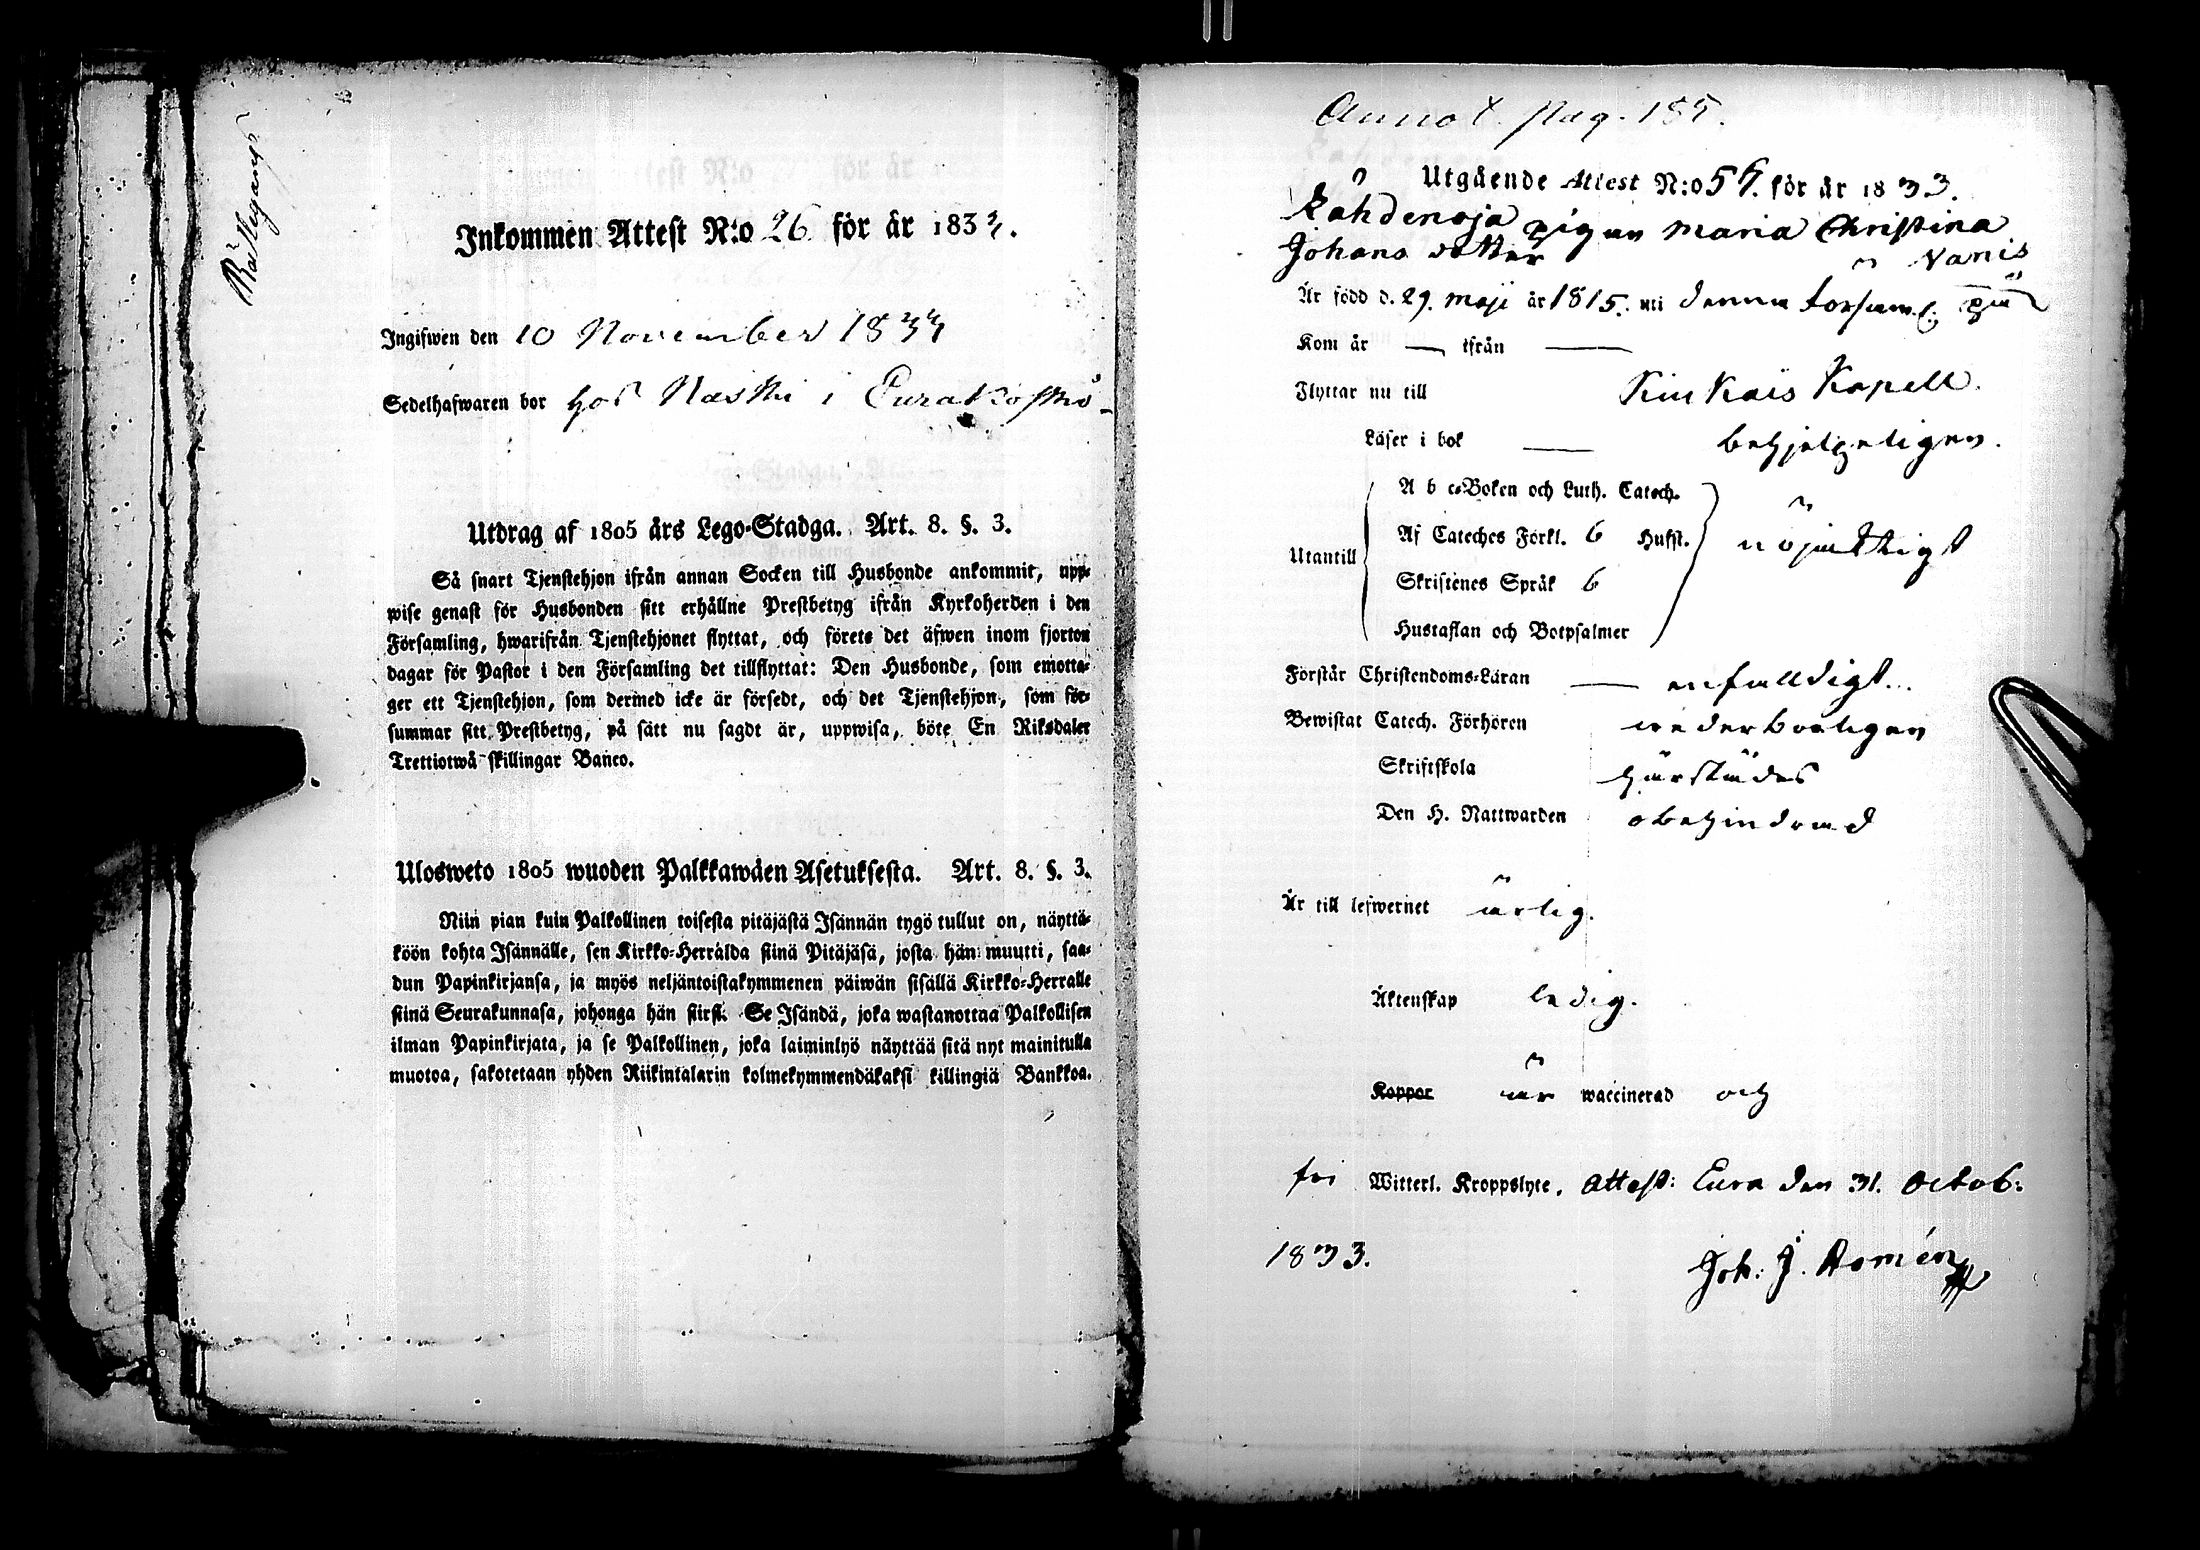 Inkommen Attest N:o 26 för år 1833.
Ingifwen den 10 November 1833
Sedelhafwaren bor hos Naski i Eurakoski
Utdrag af 1805 års Lego-Stadga. Art. 8. §. 3.
Så snart Tjenstehjon ifrån annan Socken till Husbonde ankommit, upp-
wise genast för Husbonden sitt erhållne Prestbetyg ifrån Kyrkoherden i den
Församling, hwarifrån Tjenstehjonet flyttat, och förete det äfwen inom fjorton
dagar för Pastor i den Församling det tillflyttat: Den Husbonde, som emotta-
ger ett Tjenstehjon, som dermed icke är försedt, och det Tjenstehjon, som för-
summar sitt Prestbetyg, på sätt nu sagdt är, uppwisa, böte En Riksdaler
Trettiotwå skillingar Banco.
Ulosweto 1805 wuoden Palkkawäen Asetuksesta. Art. 8. §. 3.
Niin pian kuin Palkollinen toisesta pitäjästä Isännän tygö tullut on, näyttä-
köön kohta Isännälle, sen Kirkko-Herralda siinä Pitäjäsä, josta hän muutti, saa-
dun Papinkirjansa, ja myös neljäntoistakymmenen päiwän sisällä Kirkko-Herralle
siinä Seurakunnasa, johonga hän siirsi. Se Isändä, joka wastanottaa Palkollisen
ilman Papinkirjata, ja se Palkollinen, joka laiminlyö näyttää sitä nyt mainitulla
muotoa, sakotetaan yhden Riikintalarin kolmekymmendäkaksi killingiä Bankkoa.
Anno Pag. 185.
Utgående Attest N:o 54. för år 1833.
Lähdenoja pigan Maria Christina
Johans dotter
Är född d. 29. Maji år 1815. uti denna församl.
Kom år — ifrån —
Flyttar nu till Kiukais Kapell.
Läser i bok — behjelpeligen.
Utantill
A b c-Boken och Luth. Catech.
Af Cateches Förkl. 6 Hufst. nöjaktigt
Skriftenes Språk 6
Hustaflan och Botpsalmer
Förstår Christendoms-Läran — enfaldigt.
Bewistat Catech. Förhören wederborligen
Skriftskola härstädes
Den H. Nattwarden obehindrad
Är till lefwernet ärlig.
Äktenskap ledig.
Koppor är waccinerad och
fri Witterl. Kroppslyte. Attest: Eura den 31. Octob:
1833. Joh: J. Homén